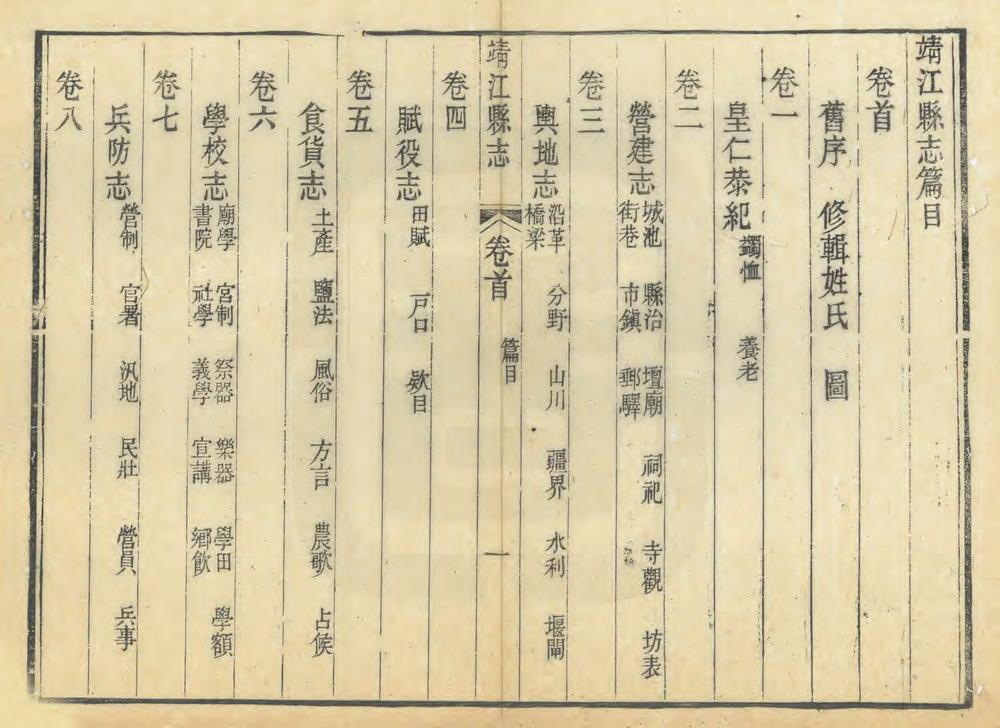 靖江縣志篇目
卷首
舊序 修輯姓氏 圖
卷一
皇仁恭紀 蠲恤 養老
卷二
營建志 城池 縣治 壇廟 祠祀 寺觀 坊表
街巷 市鎮 郵驛
卷三
輿地志 沿革 分野 山川 疆界 水利 堰閘
橋梁
靖江縣志 卷首 篇目 一
卷四
賦役志 田賦 戶口 欵目
卷五
食貨志 土產 鹽法 風俗 方言 農歌 占候
卷六
學校志 廟學 宮制 祭器 樂器 學田 學額
書院 社學 義學 宣講 鄉飲
卷七
兵防志 營制 官署 汛地 民壯 營員 兵事
卷八